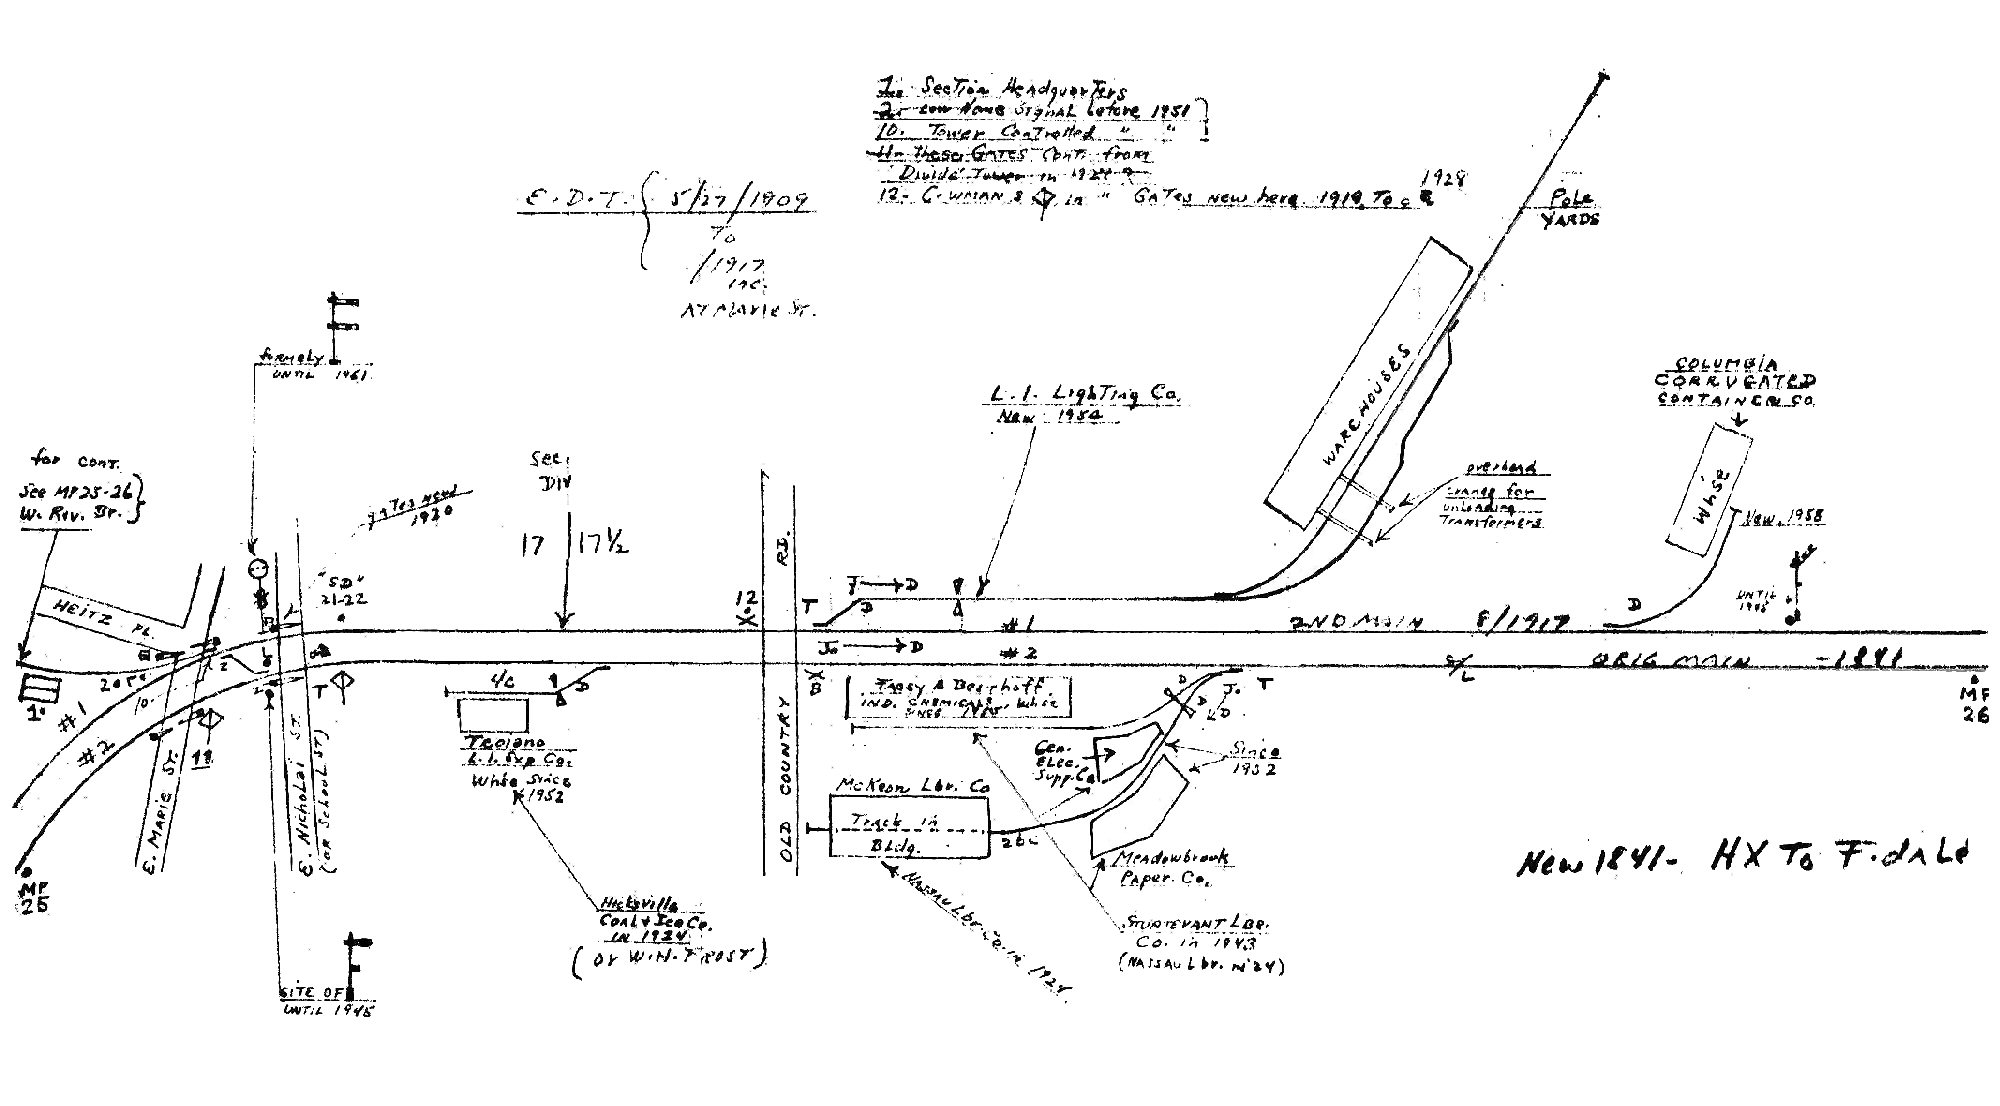 1. Section Headquarters
2. Low Home Signal before 1951
10. Tower Controlled " "
11- These Gates Cont. from
"Divide" Tower in 1924
12- C. WMAN'S in " GATES New here 1919 To
1928
E.D.T. 5/27/1909
To
/1917
inc.
AT MARIE ST.
Pole
YARDS
formerly
UNTIL 1961
L.I. Lighting Co.
New 1954
WAREHOUSES
COLUMBIA
CORRUGATED
CONTAINER CO.
Whse
New 1958
overhead
crane for
unloading
Transformers
for CONT.
See MP25-26
W. Riv. Br.
gates new
1920
Sec.
DIV
17
17½
"SD"
21-22
HEITZ PL.
12
T
D
D
#1
#2
2ND MAIN 8/1917
ORIG MAIN -1841
D
UNTIL
1945
MP
26
D
S/L
10.
#1
#2
T
1.
4/c
D
Trojano
L.I. Exp Co.
Whse since
1952
OLD COUNTRY RD.
IND. CHEMICALS Whse
D
D
D
T
Gen.
Elec.
Supp. Co
Since
1952
McKeon Lbr. Co
Track in
Bldg.
26c
Meadowbrook
Paper Co.
E. MARIE ST.
E. Nicholai ST.
(OR School ST)
MP
25
New 1841- HX To F.dale
Hicksville
Coal & Ice Co.
in 1924
(or W.H. FROST)
NASSAU Lbr Co. in 1924
STURTEVANT LBR.
Co. in 1943
(NASSAU Lbr. in '24)
SITE OF
UNTIL 1945